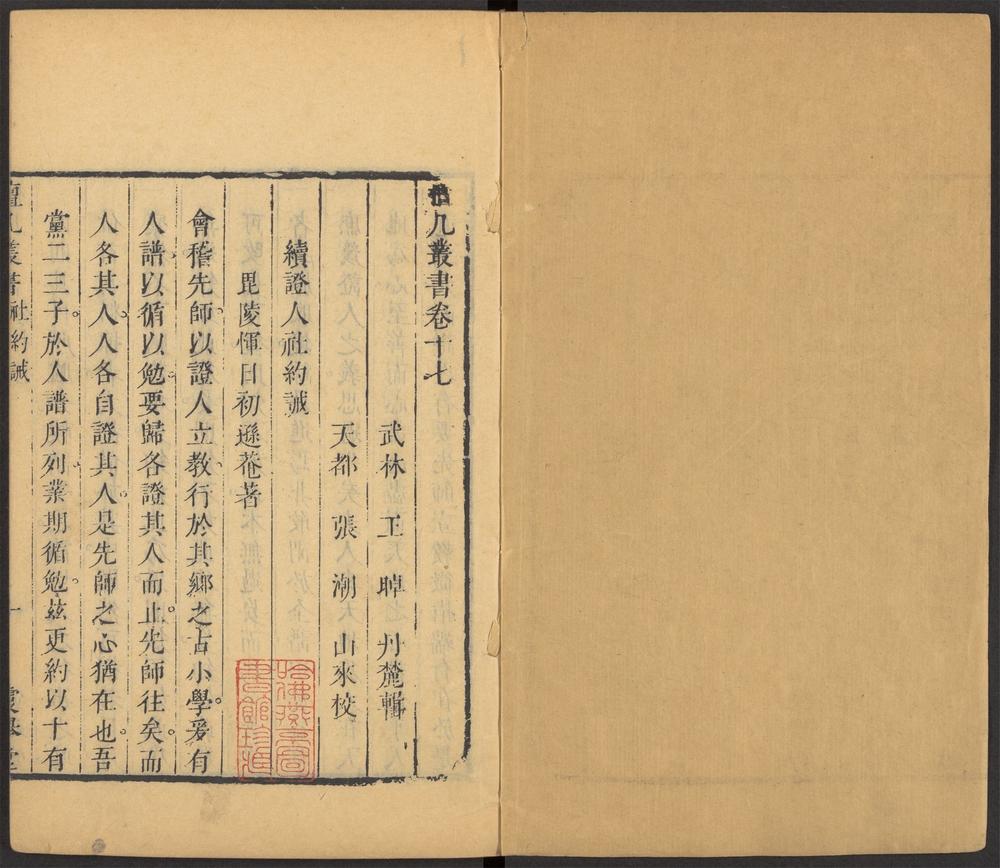 檀几叢書卷十七
武林 王晫 丹麓輯
天都 張潮 山來校
續證人社約誡
毘陵惲日初遜菴著
會稽先師以證人立教行於其鄉之古小學爰有
人譜以循以勉要歸各證其人而止。先師往矣。而
人各其人。人各自證其人。是先師之心猶在也。吾
黨二三子。於人譜所列業期循勉。茲更約以十有
檀几叢書 社約誡 一 霞舉堂
哈佛燕京圖書館珍藏